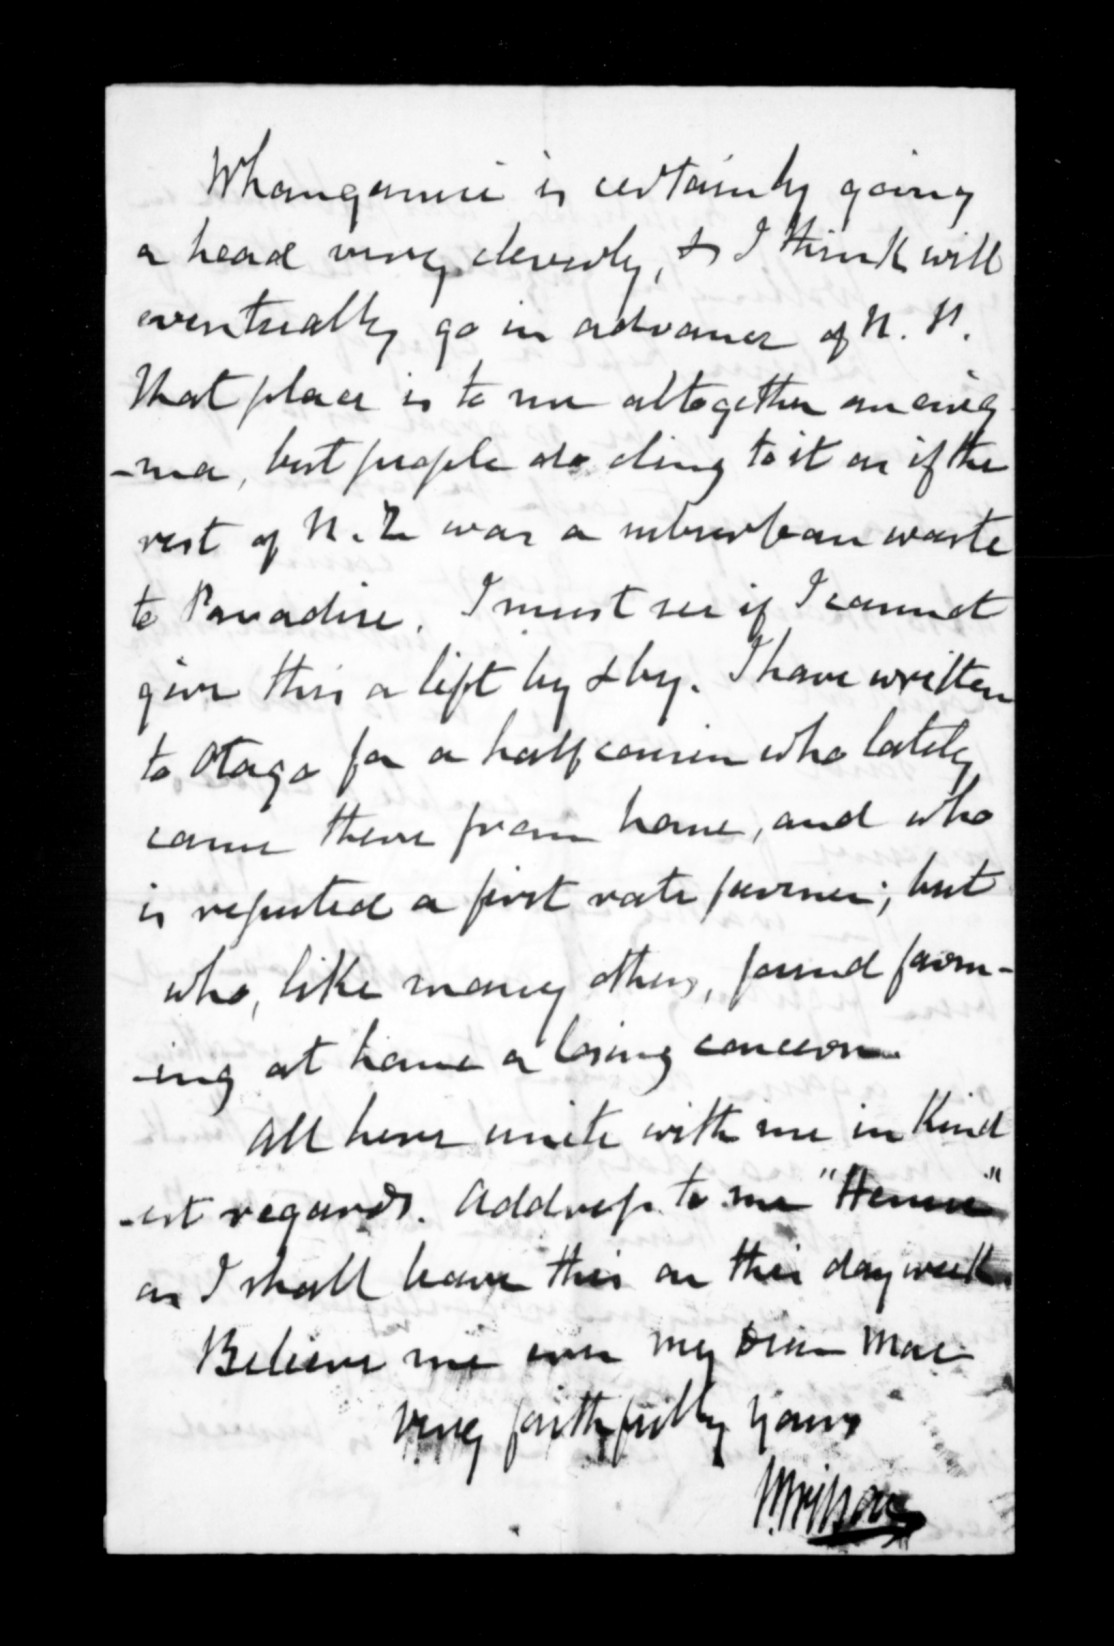 Whanganui is certainly going
a head very cleverly, & I think will
eventually go in advance of N. P.
That place is to me altogether an enig
-ma, but people do cling to it as if the
rest of N. Z was a suburban waste
to Paradise. I must see if I cannot
give this a lift by & by. I have written
to Otago for a half cousin who lately
came there from home, and who
is reputed a first rate farmer; but
who, like many others, found farm-
-ing at home a losing concern.
All here unite with me in Kind
-est regards. Address to me "Henui"
as I shall leave this on this day week.
Believe me ever my Dear Mac
very faithfully yours